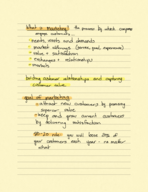 what is marketing? the process by which companies
engage customers,
needs, wants and demands
market offerings (service, goods, experiences)
value + satisfaction
exchanges + relationships
markets
building customer relationships and capturing
customer value
goal of marketing
attract new customers by promising
superior value
keep and grow current customers
by delivering satisfaction
80-20 rule: you will lose 20% of
your customers each year - no matter
what